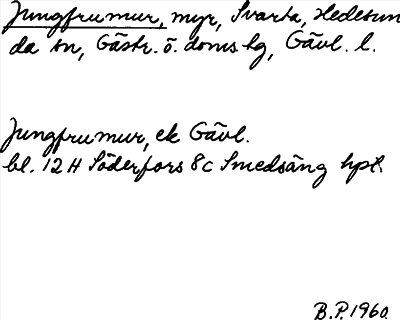 Jungfrumur, myr, Svarta, Hedesun
da sn, Gästr. ö. doms hg, Gävl. l.
Jungfrumur, ek Gävl.
bl. 12 H Söderfors 8c Smedsäng hpl.
B.P. 1960.